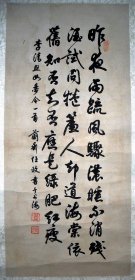 昨夜雨疏風驟濃睡不消殘
酒試問捲簾人卻道海棠依
舊知否知否應是綠肥紅瘦
李清照如夢令一首 任政書于上海